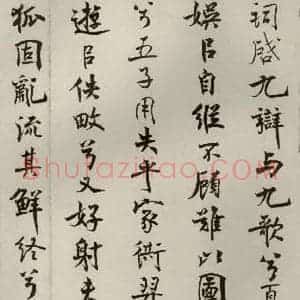 詞啟九辯与九歌兮夏
娛㠯自縱不顧難以圖
兮五子用失乎家衖羿
遊㠯佚畋兮又好射夫
狐固亂流其鮮終兮